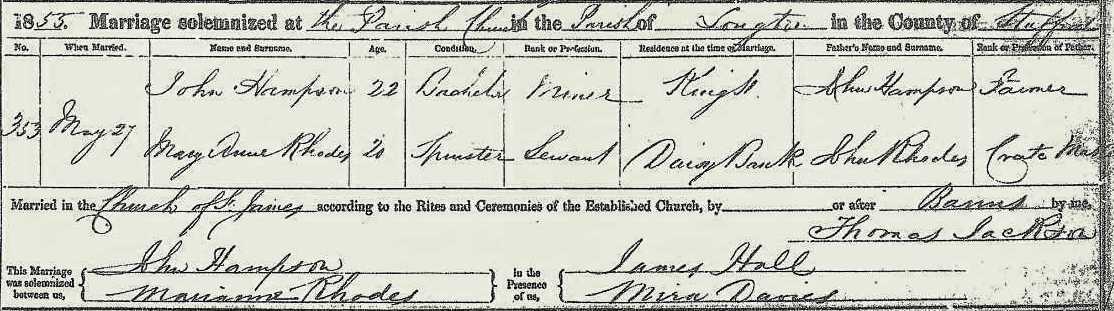 1853. Marriage solemnized at the Parish Church in the Parish of Longton in the County of Stafford
No. When Married. Name and Surname. Age. Condition. Rank or Profession. Residence at the time of Marriage. Father's Name and Surname. Rank or Profession of Father.
John Hampson 22 Bachelor Miner King St. John Hampson Farmer
353 May 27
Mary Anne Rhodes 20 Spinster Servant Daisy Bank John Rhodes Crate
Married in the Church of St. James according to the Rites and Ceremonies of the Established Church, by or after Banns by me,
Thomas Jackson
This Marriage was solemnized between us, John Hampson in the Presence of us, James Hall
Marianne Rhodes Mira Davies